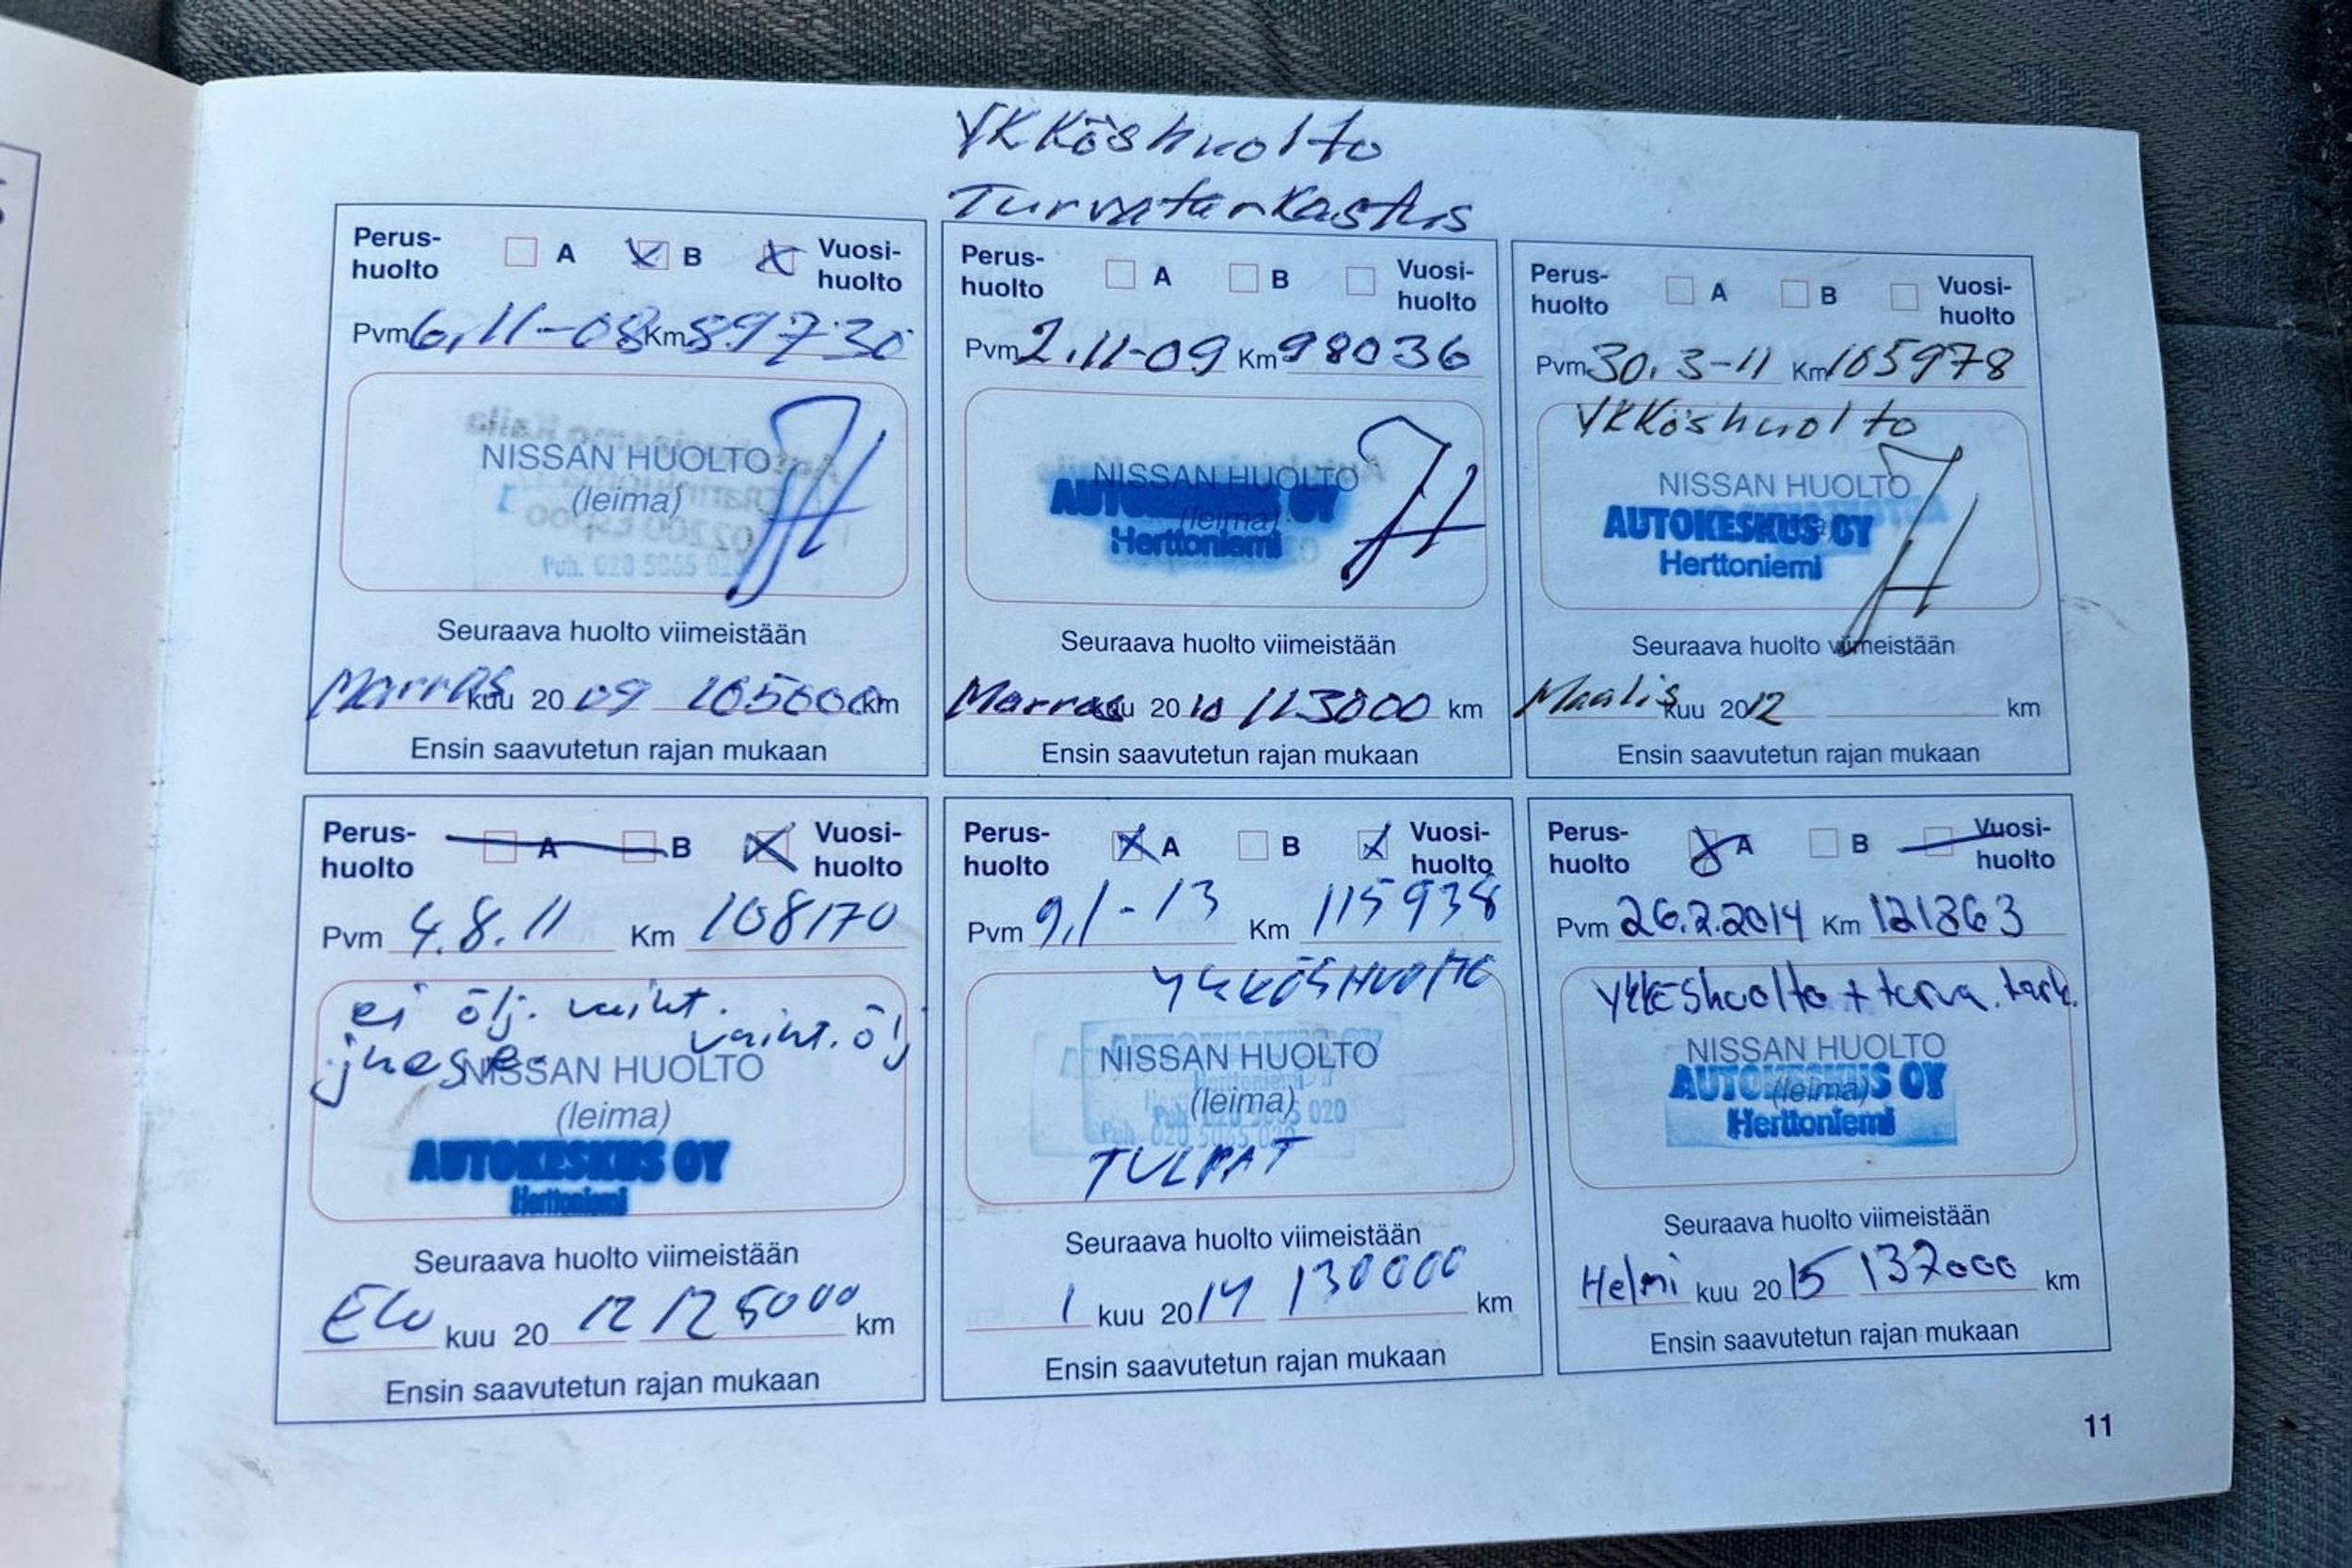 YKKöshuolto
Turvatarkastus
Perus-
huolto
A
B
Vuosi-
huolto
Pvm 6.11-08 Km 89730
NISSAN HUOLTO
(leima)
Puh. 020 5065 020
Seuraava huolto viimeistään
Marras kuu 20 09 105000 km
Ensin saavutetun rajan mukaan
Perus-
huolto
A
B
Vuosi-
huolto
Pvm 2.11-09 Km 98036
NISSAN HUOLTO
AUTOKESKUS OY
(leima)
Herttoniemi
Seuraava huolto viimeistään
Marras kuu 20 10 113000 km
Ensin saavutetun rajan mukaan
Perus-
huolto
A
B
Vuosi-
huolto
Pvm 30.3-11 Km 105978
YKKöshuolto
NISSAN HUOLTO
AUTOKESKUS OY
Herttoniemi
Seuraava huolto viimeistään
Maalis kuu 2012 km
Ensin saavutetun rajan mukaan
Perus-
huolto
A
B
Vuosi-
huolto
Pvm 4.8.11 Km 108170
ei ölj. vaiht.
vaiht. ölj
NISSAN HUOLTO
(leima)
AUTOKESKUS OY
Herttoniemi
Seuraava huolto viimeistään
Elo kuu 20 12 125000 km
Ensin saavutetun rajan mukaan
Perus-
huolto
A
B
Vuosi-
huolto
Pvm 9.1-13 Km 115938
YKKÖSHUOLTO
NISSAN HUOLTO
(leima)
Puh. 020 5065 020
TULPAT
Seuraava huolto viimeistään
1 kuu 2014 130000 km
Ensin saavutetun rajan mukaan
Perus-
huolto
A
B
Vuosi-
huolto
Pvm 26.2.2014 Km 121863
ykköshuolto + turva.tark.
NISSAN HUOLTO
AUTOKESKUS OY
(leima)
Herttoniemi
Seuraava huolto viimeistään
Helmi kuu 2015 137000 km
Ensin saavutetun rajan mukaan
11